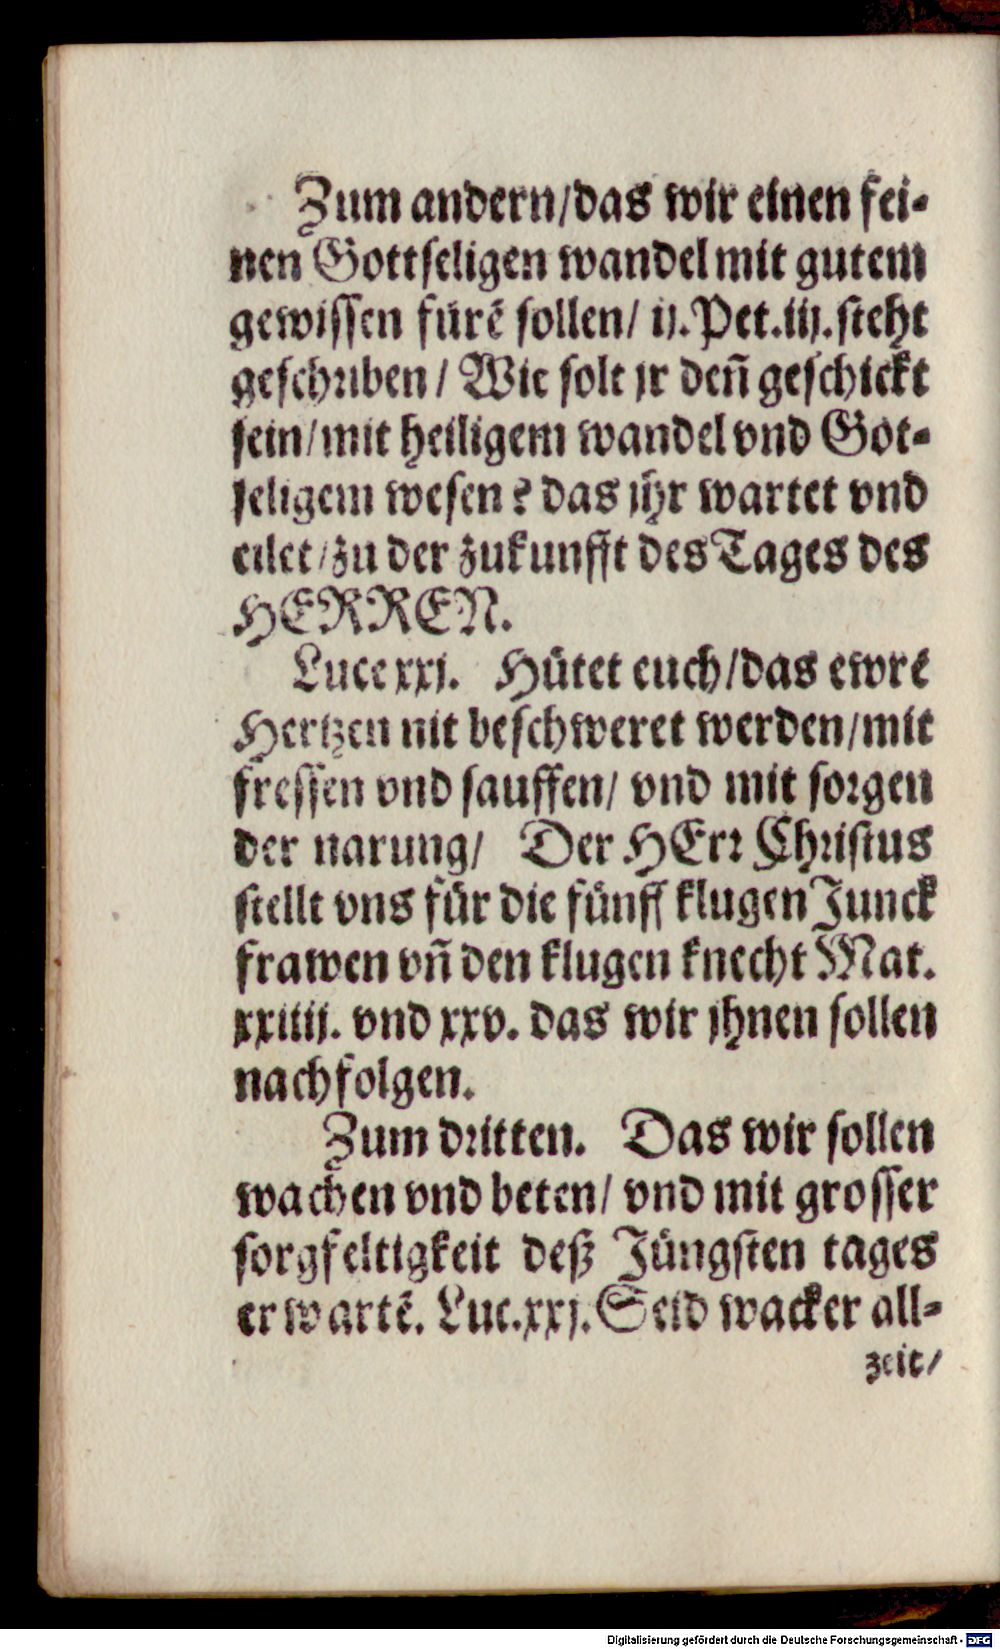 Zum andern/das wir einen fei-
nen Gottseligen wandel mit gutem
gewissen fürẽ sollen/ ij. Pet. iij. steht
geschriben/ Wie solt jr deñ geschickt
sein/mit heiligem wandel vnd Got-
seligem wesen? das jhr wartet vnd
eilet/zu der zukunfft des Tages des
HERREN.
Luce xxj. Hütet euch/das ewrẽ
Hertzen nit beschweret werden/mit
fressen vnd sauffen/ vnd mit sorgen
der narung/ Der HErr Christus
stellt vns für die fünff klugen Junck
frawen vñ den klugen knecht Mat.
xxiiij. vnd xxv. das wir jhnen sollen
nachfolgen.
Zum dritten. Das wir sollen
wachen vnd beten/ vnd mit grosser
sorgfeltigkeit deß Jüngsten tages
erwartẽ. Luc. xxj. Seid wacker all-
zeit/
Digitalisierung gefördert durch die Deutsche Forschungsgemeinschaft - DFG